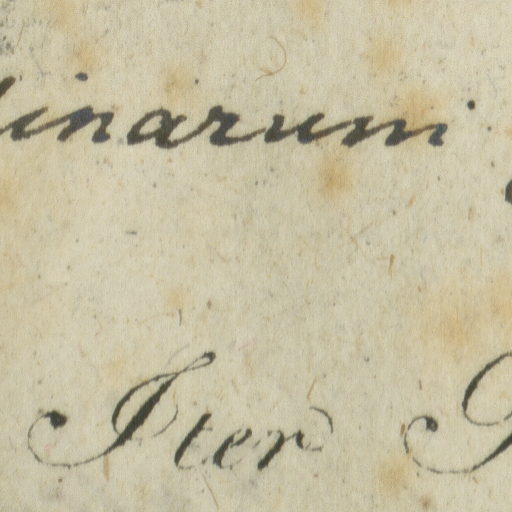 linarum
Iter